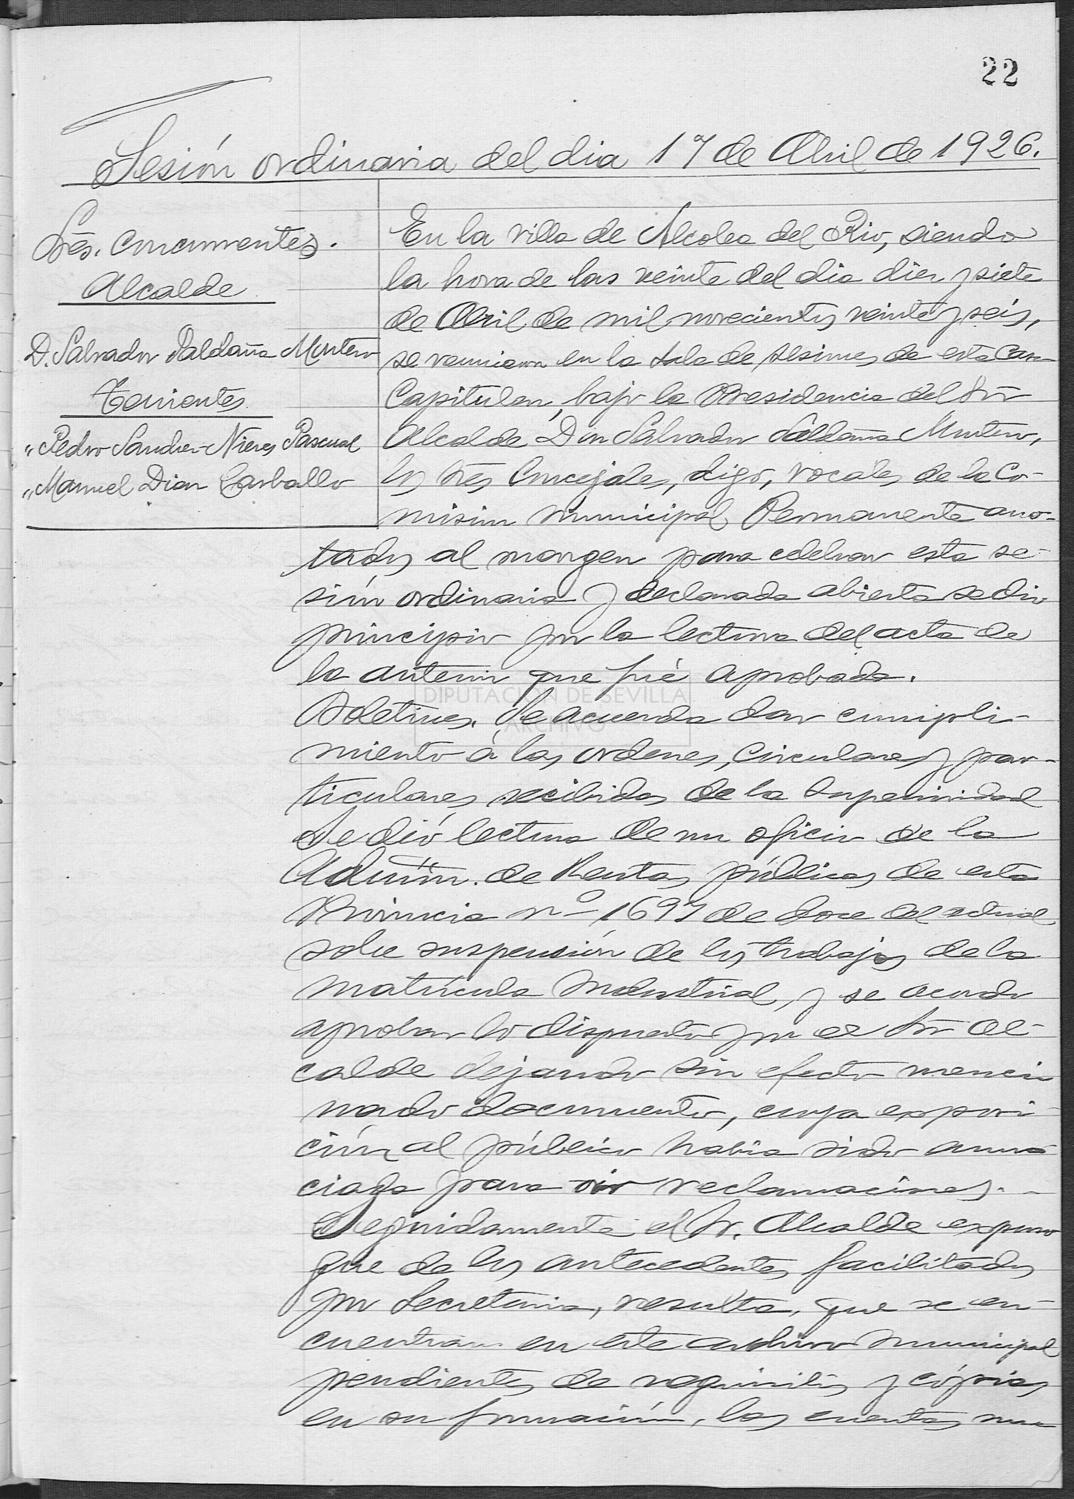 22
Sesión ordinaria del dia 17 de Abril de 1926.
Sres. concurrentes.
Alcalde
D. Salvador Saldaña Montero
Tenientes
" Pedro Sanchez-Nieves Pascual
" Manuel Diaz Carballo
En la villa de Alcolea del Rio, siendo
la hora de las veinte del dia diez y siete
de Abril de mil novecientos veinte y seis,
se reunieron en la Sala de sesiones de esta Casa
Capitular, bajo la Presidencia del Sr.
Alcalde Don Salvador Saldaña Montero,
los Sres Concejales, digo, vocales de la Co-
misión municipal Permanente ano-
tados al margen para celebrar esta se-
sión ordinaria y declarada abierta se dio
principio por la lectura del acta de
la anterior que fué aprobada.
DIPUTACION DE SEVILLA
ARCHIVO
Boletines. Se acuerda dar cumpli-
miento á las ordenes, circulares y par-
ticulares recibidas de la Superioridad
Se dió lectura de un oficio de la
Admón. de Rentas públicas de esta
Provincia nº 1697 de doce del actual
sobre suspensión de los trabajos de la
matrícula Industrial, y se acordo
aprobar lo dispuesto por el Sr. Al-
calde dejando sin efecto mencio
nado documento, cuya exposi-
ción al público habia sido anun
ciada para oir reclamaciones.-
Seguidamente el Sr. Alcalde expuso
que de los antecedentes facilitados
por Secretaria, resulta, que se en-
cuentran en este archivo municipal
pendientes de requisitos y cópias
en su formación, las cuentas mu